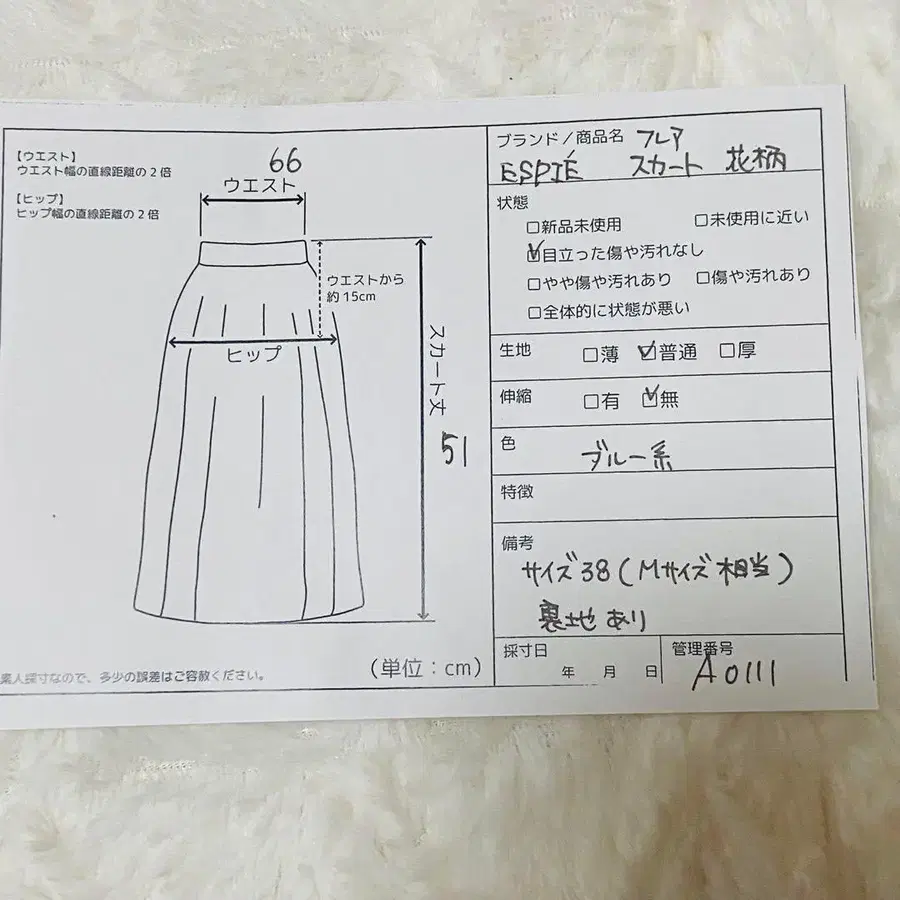 【ウエスト】
ウエスト幅の直線距離の2倍
【ヒップ】
ヒップ幅の直線距離の2倍
66
ウエスト
ウエストから
約15cm
ヒップ
スカート丈
51
(単位:cm)
素人採寸なので、多少の誤差はご容赦ください。
ブランド/商品名 フレア
ESPIÉ スカート 花柄
状態
□新品未使用 □未使用に近い
☑目立った傷や汚れなし
□やや傷や汚れあり □傷や汚れあり
□全体的に状態が悪い
生地 □薄 ☑普通 □厚
伸縮 □有 ☑無
色
ブルー系
特徴
備考
サイズ38(Mサイズ相当)
裏地あり
採寸日
年 月 日
管理番号
A0111